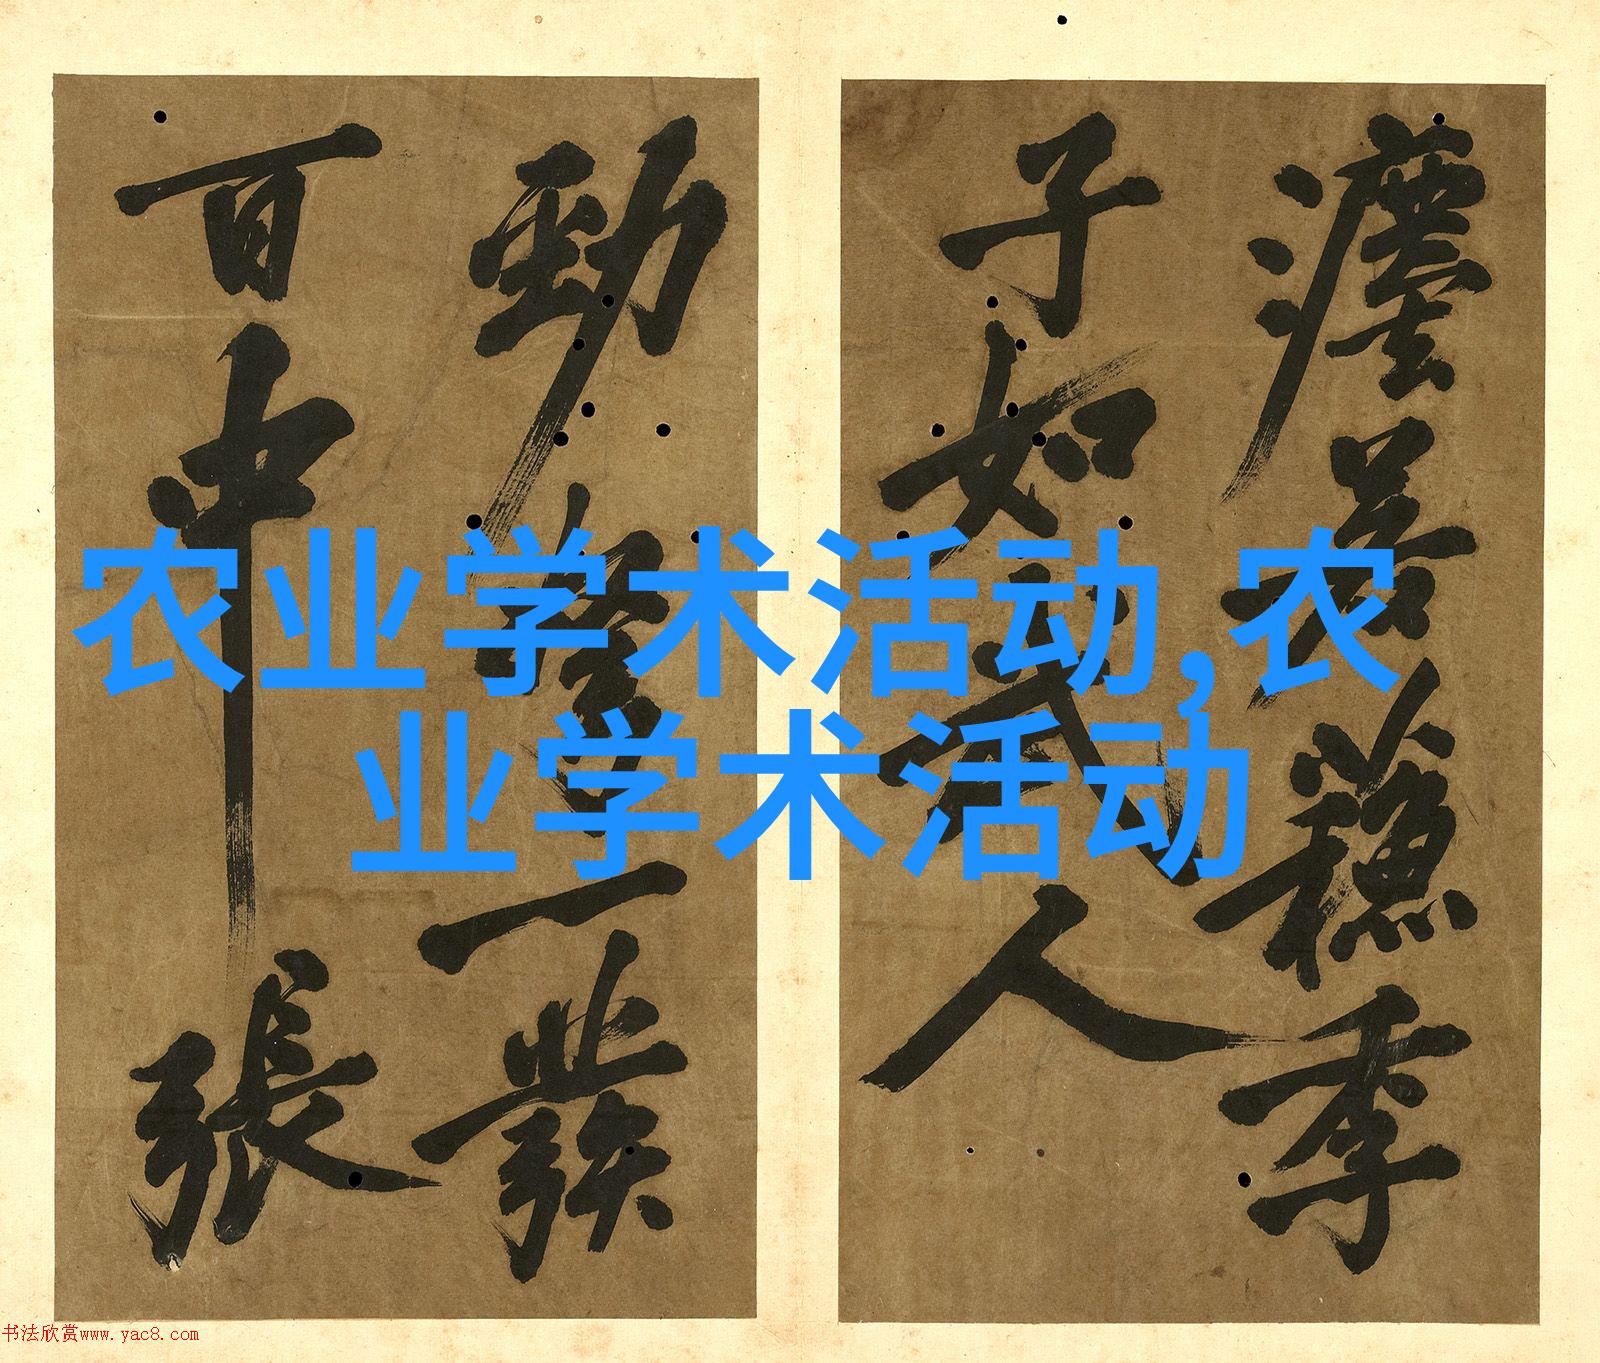 瀍若蘓季
子如人
勁一發
百中張
农业学术活动,农
业学术活动
书法欣赏www.yac8.com